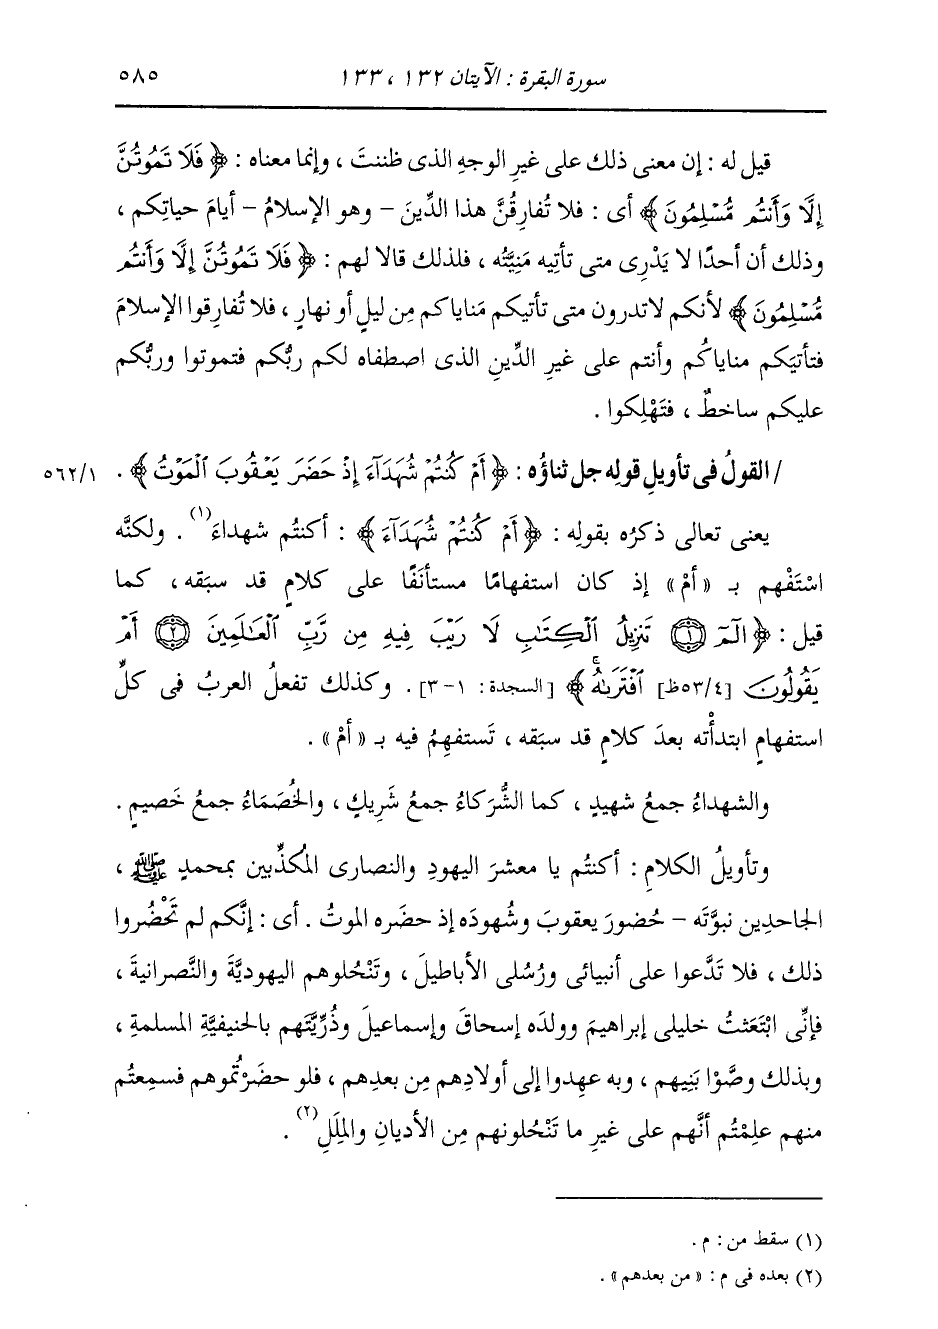 سورة البقرة : الآيتان ١٣٢ ، ١٣٣ ٥٨٥
قيل له : إن معنى ذلك على غيرِ الوجهِ الذى ظننتَ ، وإنما معناه : ﴿ فَلَا تَمُوتُنَّ
إِلَّا وَأَنتُم مُّسْلِمُونَ ﴾ أى : فلا تُفارِقُنَّ هذا الدِّينَ – وهو الإسلامُ – أيامَ حياتِكم ،
وذلك أن أحدًا لا يَدْرِى متى تأتيه مَنِيَّتُه ، فلذلك قالا لهم : ﴿ فَلَا تَمُوتُنَّ إِلَّا وَأَنتُم
مُّسْلِمُونَ ﴾ لأنكم لاتدرون متى تأتيكم مَناياكم مِن ليلٍ أو نهارٍ ، فلا تُفارِقوا الإسلامَ
فتأتيَكم مناياكُم وأنتم على غيرِ الدِّينِ الذى اصطفاه لكم ربُّكم فتموتوا وربُّكم
عليكم ساخطٌ ، فتَهْلِكوا .
/ القولُ فى تأويلِ قولِه جل ثناؤُه : ﴿ أَمْ كُنتُمْ شُهَدَآءَ إِذْ حَضَرَ يَعْقُوبَ ٱلْمَوْتُ ﴾ . ٥٦٢/١
يعنى تعالى ذكرُه بقولِه : ﴿ أَمْ كُنتُمْ شُهَدَآءَ ﴾ : أكنتُم شهداءَ (١) . ولكنَّه
اسْتَفْهم بـ « أمْ » إذ كان استفهامًا مستأنَفًا على كلامٍ قد سبَقه ، كما
قيل : ﴿ الٓمٓ ١ تَنزِيلُ ٱلْكِتَٰبِ لَا رَيْبَ فِيهِ مِن رَّبِّ ٱلْعَٰلَمِينَ ٢ أَمْ
يَقُولُونَ [٥٣/٤ظ] ٱفْتَرَىٰهُۚ ﴾ [السجدة : ١ – ٣] . وكذلك تفعلُ العربُ فى كلِّ
استفهامٍ ابتدأْته بعدَ كلامٍ قد سبَقه ، تَستفهِمُ فيه بـ « أمْ » .
والشهداءُ جمعُ شهيدٍ ، كما الشُّرَكاءُ جمعُ شَرِيكٍ ، والخُصَمَاءُ جمعُ خَصيمٍ .
وتأويلُ الكلامِ : أكنتُم يا معشرَ اليهودِ والنصارى المُكذِّبين بمحمدٍ ﷺ ،
الجاحدِين نبوَّتَه – حُضورَ يعقوبَ وشُهودَه إذ حضَره الموتُ . أى : إنَّكم لم تَحْضُروا
ذلك ، فلا تَدَّعوا على أنبيائى ورُسُلى الأباطيلَ ، وتَنْحُلوهم اليهوديَّةَ والنَّصرانيةَ ،
فإنِّى ابْتَعَثتُ خليلى إبراهيمَ وولدَه إسحاقَ وإسماعيلَ وذُرِّيَّتَهم بالحنيفيَّةِ المسلمةِ ،
وبذلك وصَّوْا بَنِيهم ، وبه عهِدوا إلى أولادِهم مِن بعدِهم ، فلو حضَرْتُموهم فسمِعتُم
منهم علِمْتُم أنَّهم على غيرِ ما تَنْحُلونهم مِن الأديانِ والمِلَلِ (٢) .
(١) سقط من : م .
(٢) بعده فى م : « من بعدهم » .